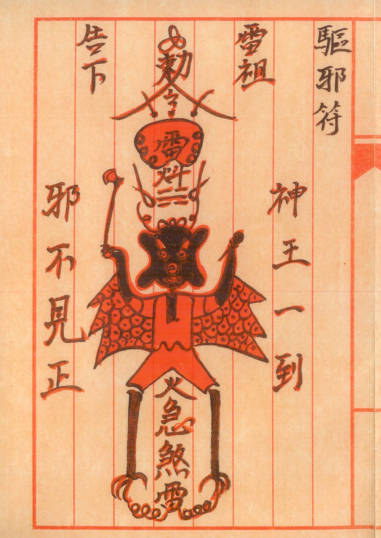 驅邪符
神王一到
雷祖
勅令
雷
火急煞雷
告下
邪不見正